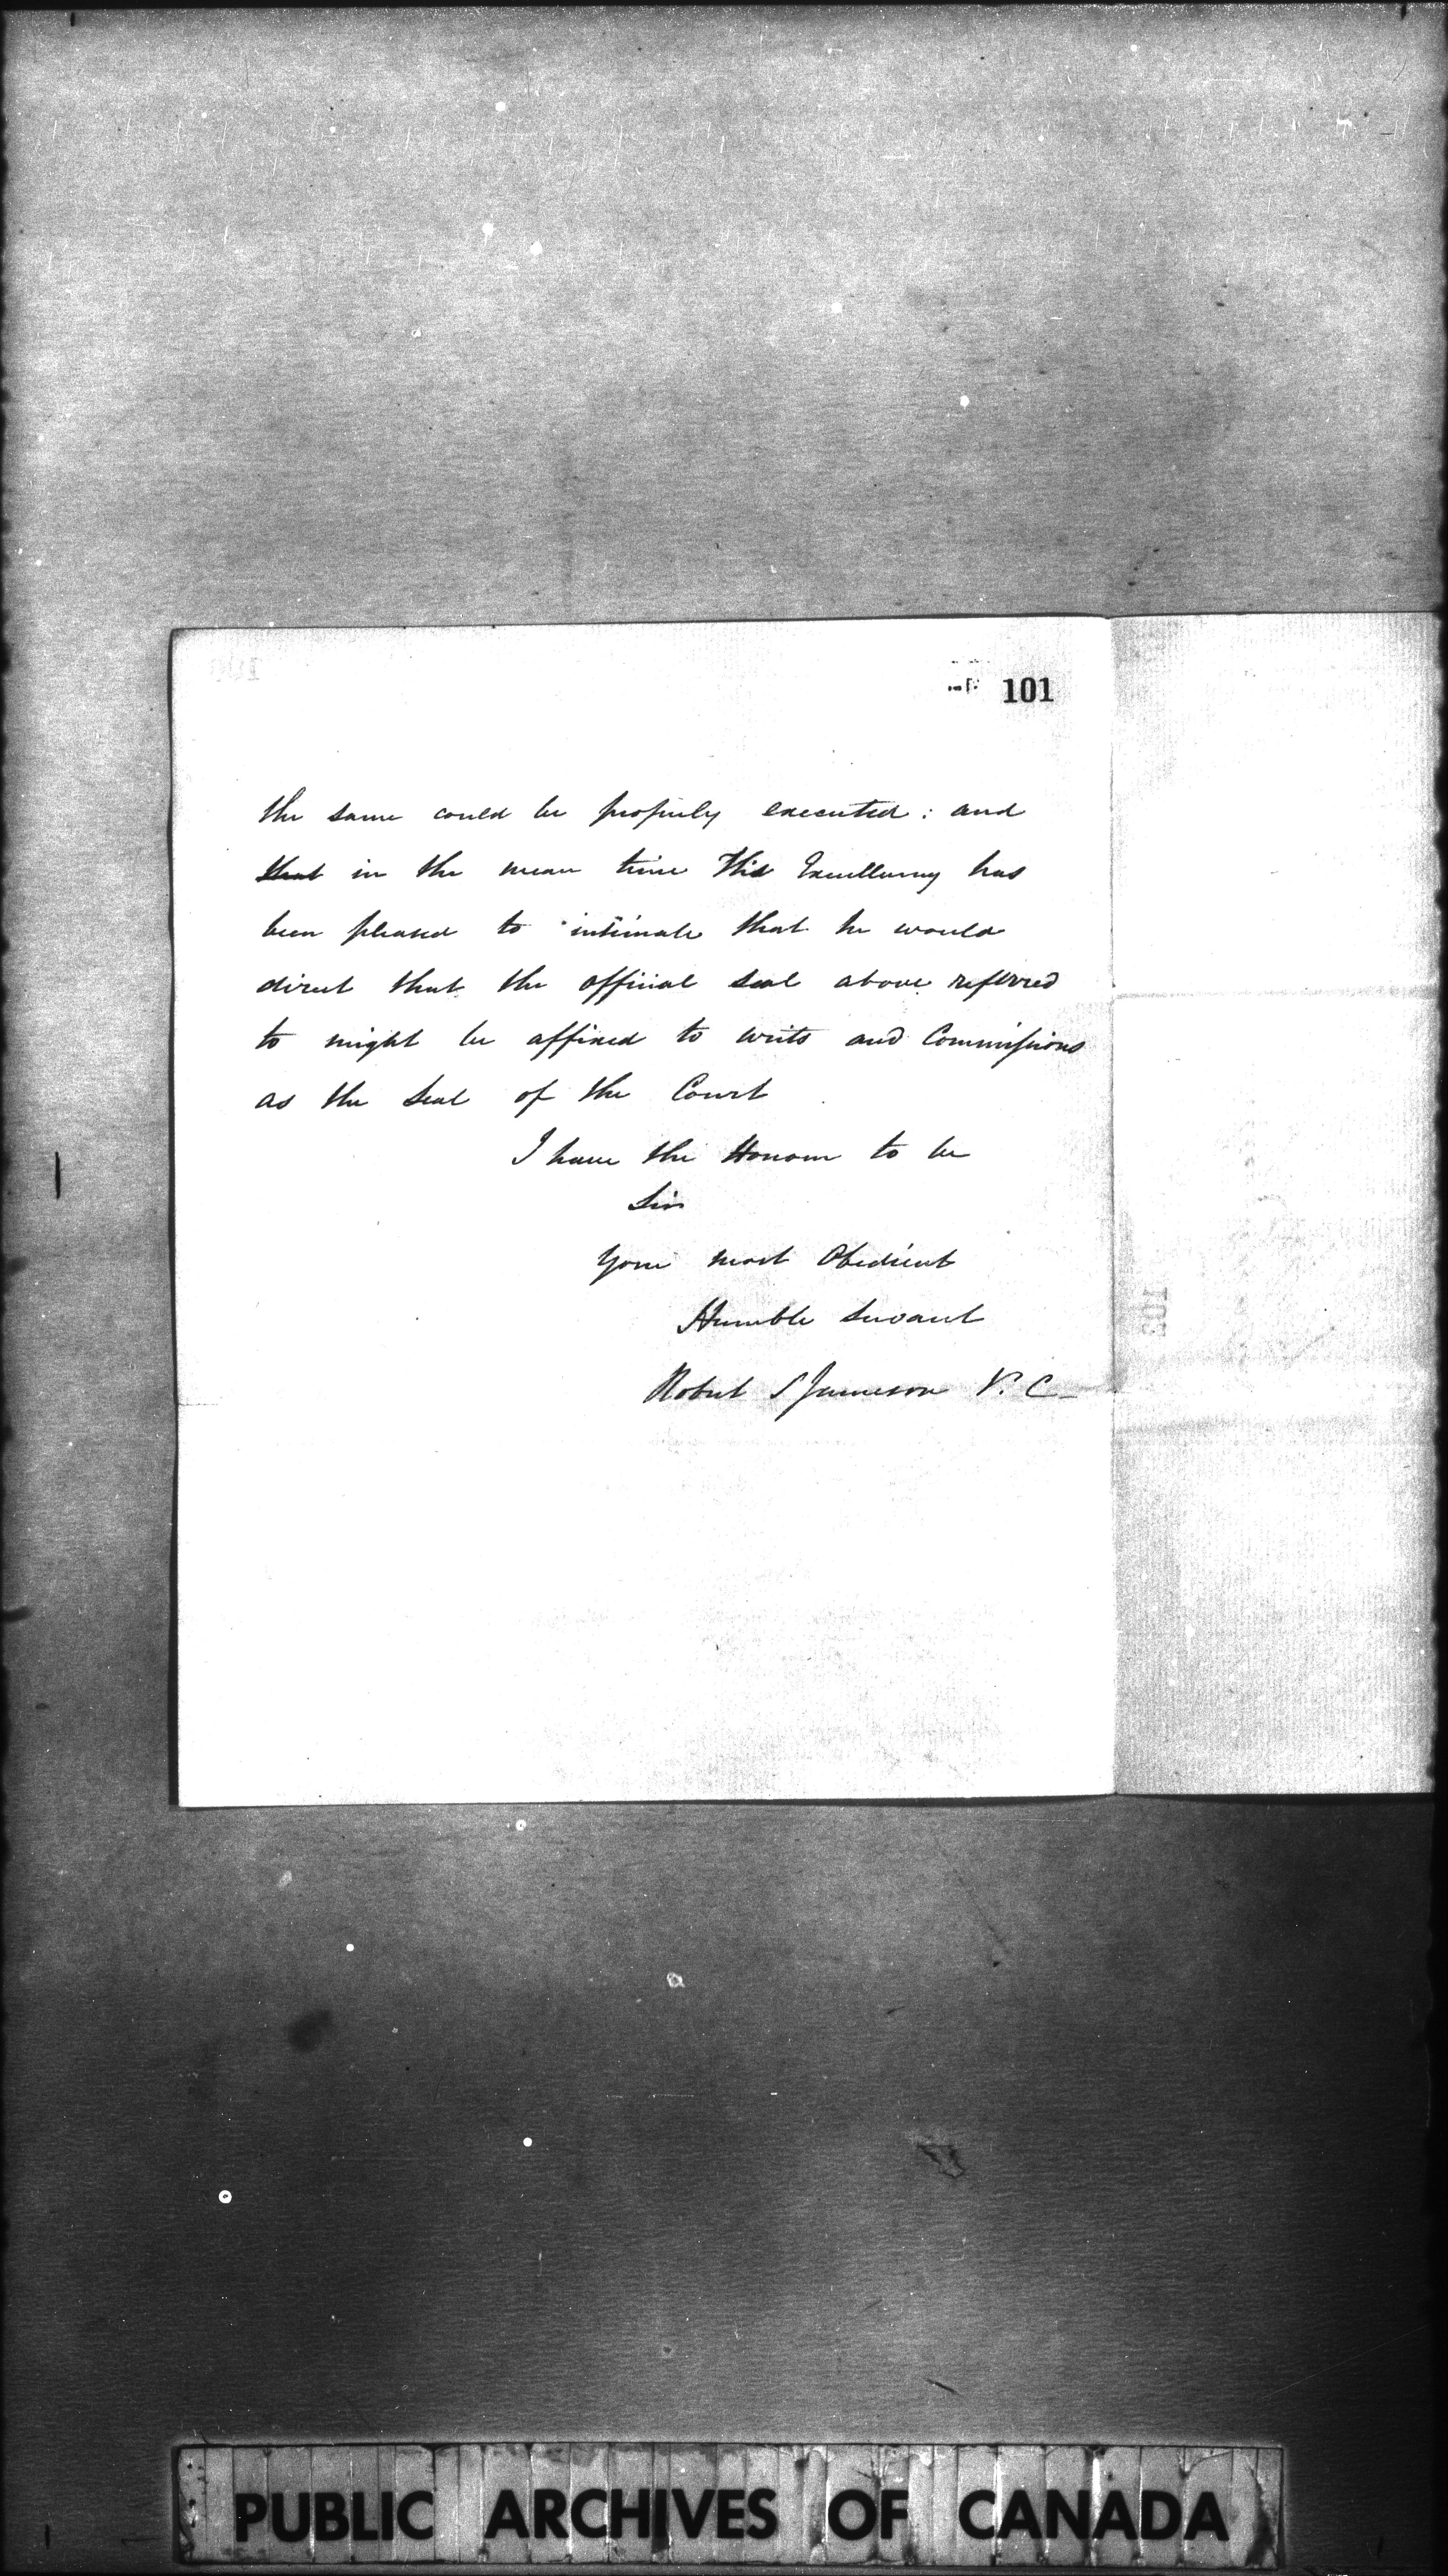 101
the same could be properly executed: and
that in the mean time His Excellency has
been pleased to intimate that he would
direct that the official seal above referred
to might be affixed to writs and Commissions
as the Seal of the Court
I have the Honour to be
Sir
Your most Obedient
Humble Servant
Robert S Jameson V. C.
PUBLIC ARCHIVES OF CANADA